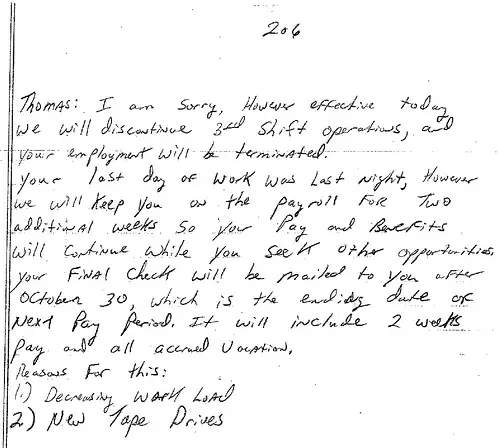 206
Thomas: I am sorry, However effective today
we will discontinue 3rd Shift operations, and
your employment will be terminated.
Your last day of work was last night, However
we will Keep you on the payroll For Two
additional weeks so your Pay and Benefits
will continue while you seek other opportunities.
your Final Check will be mailed to you after
October 30, which is the ending date of
Next Pay Period. It will include 2 weeks
Pay and all accrued Vacation.
Reasons For this:
1.) Decreasing Work Load
2) New Tape Drives